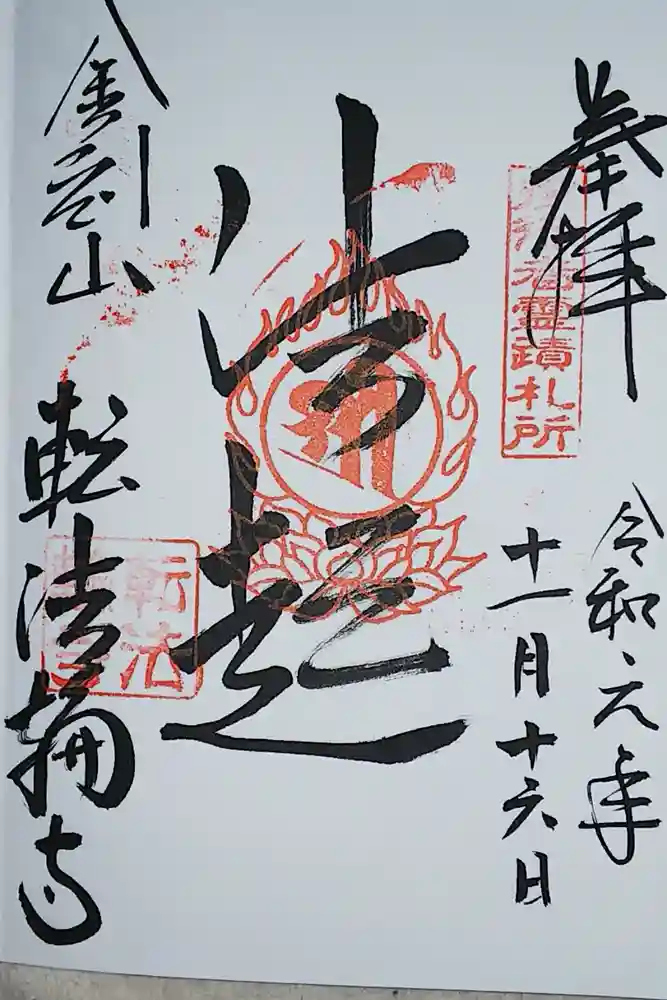 奉拝
役行者霊蹟札所
令和元年
十一月十六日
法起
金剛山
転法輪寺
転法
輪寺